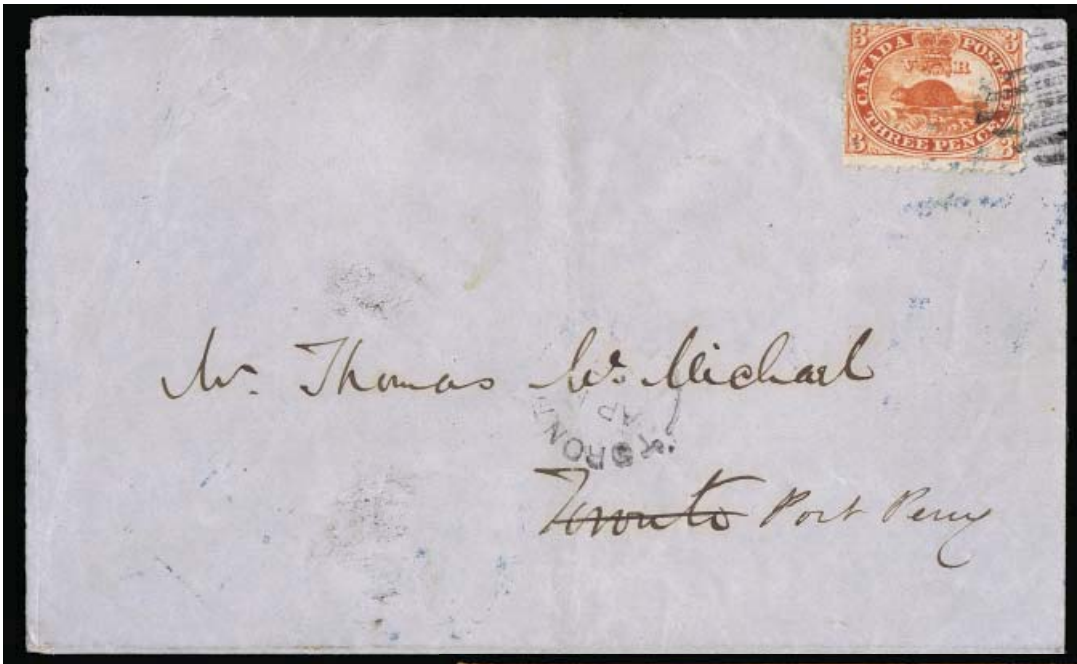 3 3
CANADA POSTAGE.
V R
THREE PENCE.
3 3
Mr. Thomas Mc. Michael
AP
Toronto Port Perry